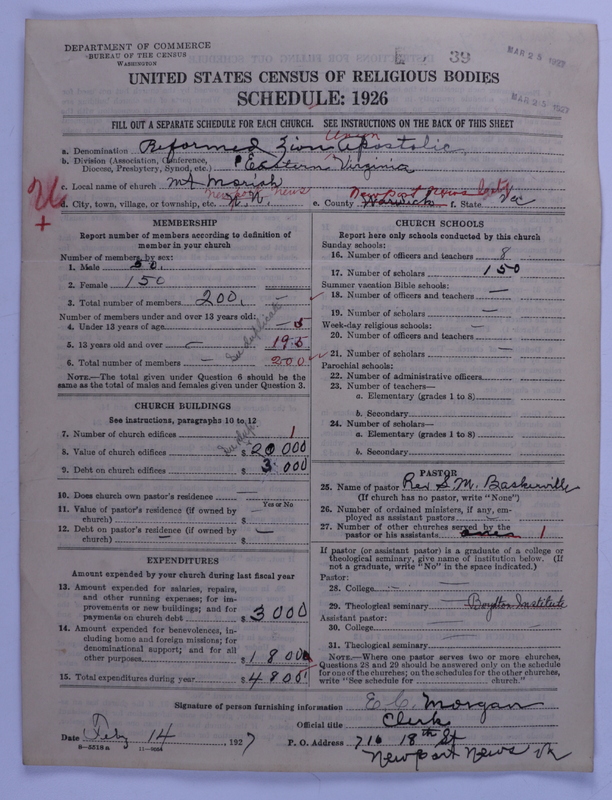 DEPARTMENT OF COMMERCE
BUREAU OF THE CENSUS
WASHINGTON
39
MAR 25 1927
MAR 25 1927
UNITED STATES CENSUS OF RELIGIOUS BODIES
SCHEDULE: 1926
FILL OUT A SEPARATE SCHEDULE FOR EACH CHURCH. SEE INSTRUCTIONS ON THE BACK OF THIS SHEET
a. Denomination Reformed Zion Union Apostolic
b. Division (Association, Conference, Diocese, Presbytery, Synod, etc.) Eastern Virginia
c. Local name of church Mt Moriah
d. City, town, village, or township, etc. N. N. Newport News e. County Warwick Newport News City f. State Va
MEMBERSHIP
Report number of members according to definition of member in your church
Number of members by sex:
1. Male 50.
2. Female 150
3. Total number of members 200.
Number of members under and over 13 years old:
4. Under 13 years of age 5
5. 13 years old and over 195
6. Total number of members 200
NOTE.—The total given under Question 6 should be the same as the total of males and females given under Question 3.
CHURCH BUILDINGS
See instructions, paragraphs 10 to 12
7. Number of church edifices 1
8. Value of church edifices $ 20 000
9. Debt on church edifices $ 3 000
10. Does church own pastor's residence —
Yes or No
11. Value of pastor's residence (if owned by church) — $
12. Debt on pastor's residence (if owned by church) — $
EXPENDITURES
Amount expended by your church during last fiscal year
13. Amount expended for salaries, repairs, and other running expenses; for improvements or new buildings; and for payments on church debt $ 3000
14. Amount expended for benevolences, including home and foreign missions; for denominational support; and for all other purposes $ 1800
15. Total expenditures during year $ 4800
CHURCH SCHOOLS
Report here only schools conducted by this church
Sunday schools:
16. Number of officers and teachers 8
17. Number of scholars 150
Summer vacation Bible schools:
18. Number of officers and teachers —
19. Number of scholars —
Week-day religious schools: —
20. Number of officers and teachers
21. Number of scholars —
Parochial schools:
22. Number of administrative officers
23. Number of teachers—
a. Elementary (grades 1 to 8)
b. Secondary
24. Number of scholars—
a. Elementary (grades 1 to 8)
b. Secondary
PASTOR
25. Name of pastor Rev S. M. Baskerville
(If church has no pastor, write "None")
26. Number of ordained ministers, if any, employed as assistant pastors —
27. Number of other churches served by the pastor or his assistants 1
If pastor (or assistant pastor) is a graduate of a college or theological seminary, give name of institution below. (If not a graduate, write "No" in the space indicated.)
Pastor:
28. College —
29. Theological seminary Boydton Institute
Assistant pastor:
30. College —
31. Theological seminary
NOTE.—Where one pastor serves two or more churches, Questions 28 and 29 should be answered only on the schedule for one of the churches; on the schedules for the other churches, write "See schedule for church."
Signature of person furnishing information E. C. Morgan
Official title Clerk
Date Feb 14, 1927 P. O. Address 716 18th St
Newport News Va
8-5518a 11-9554